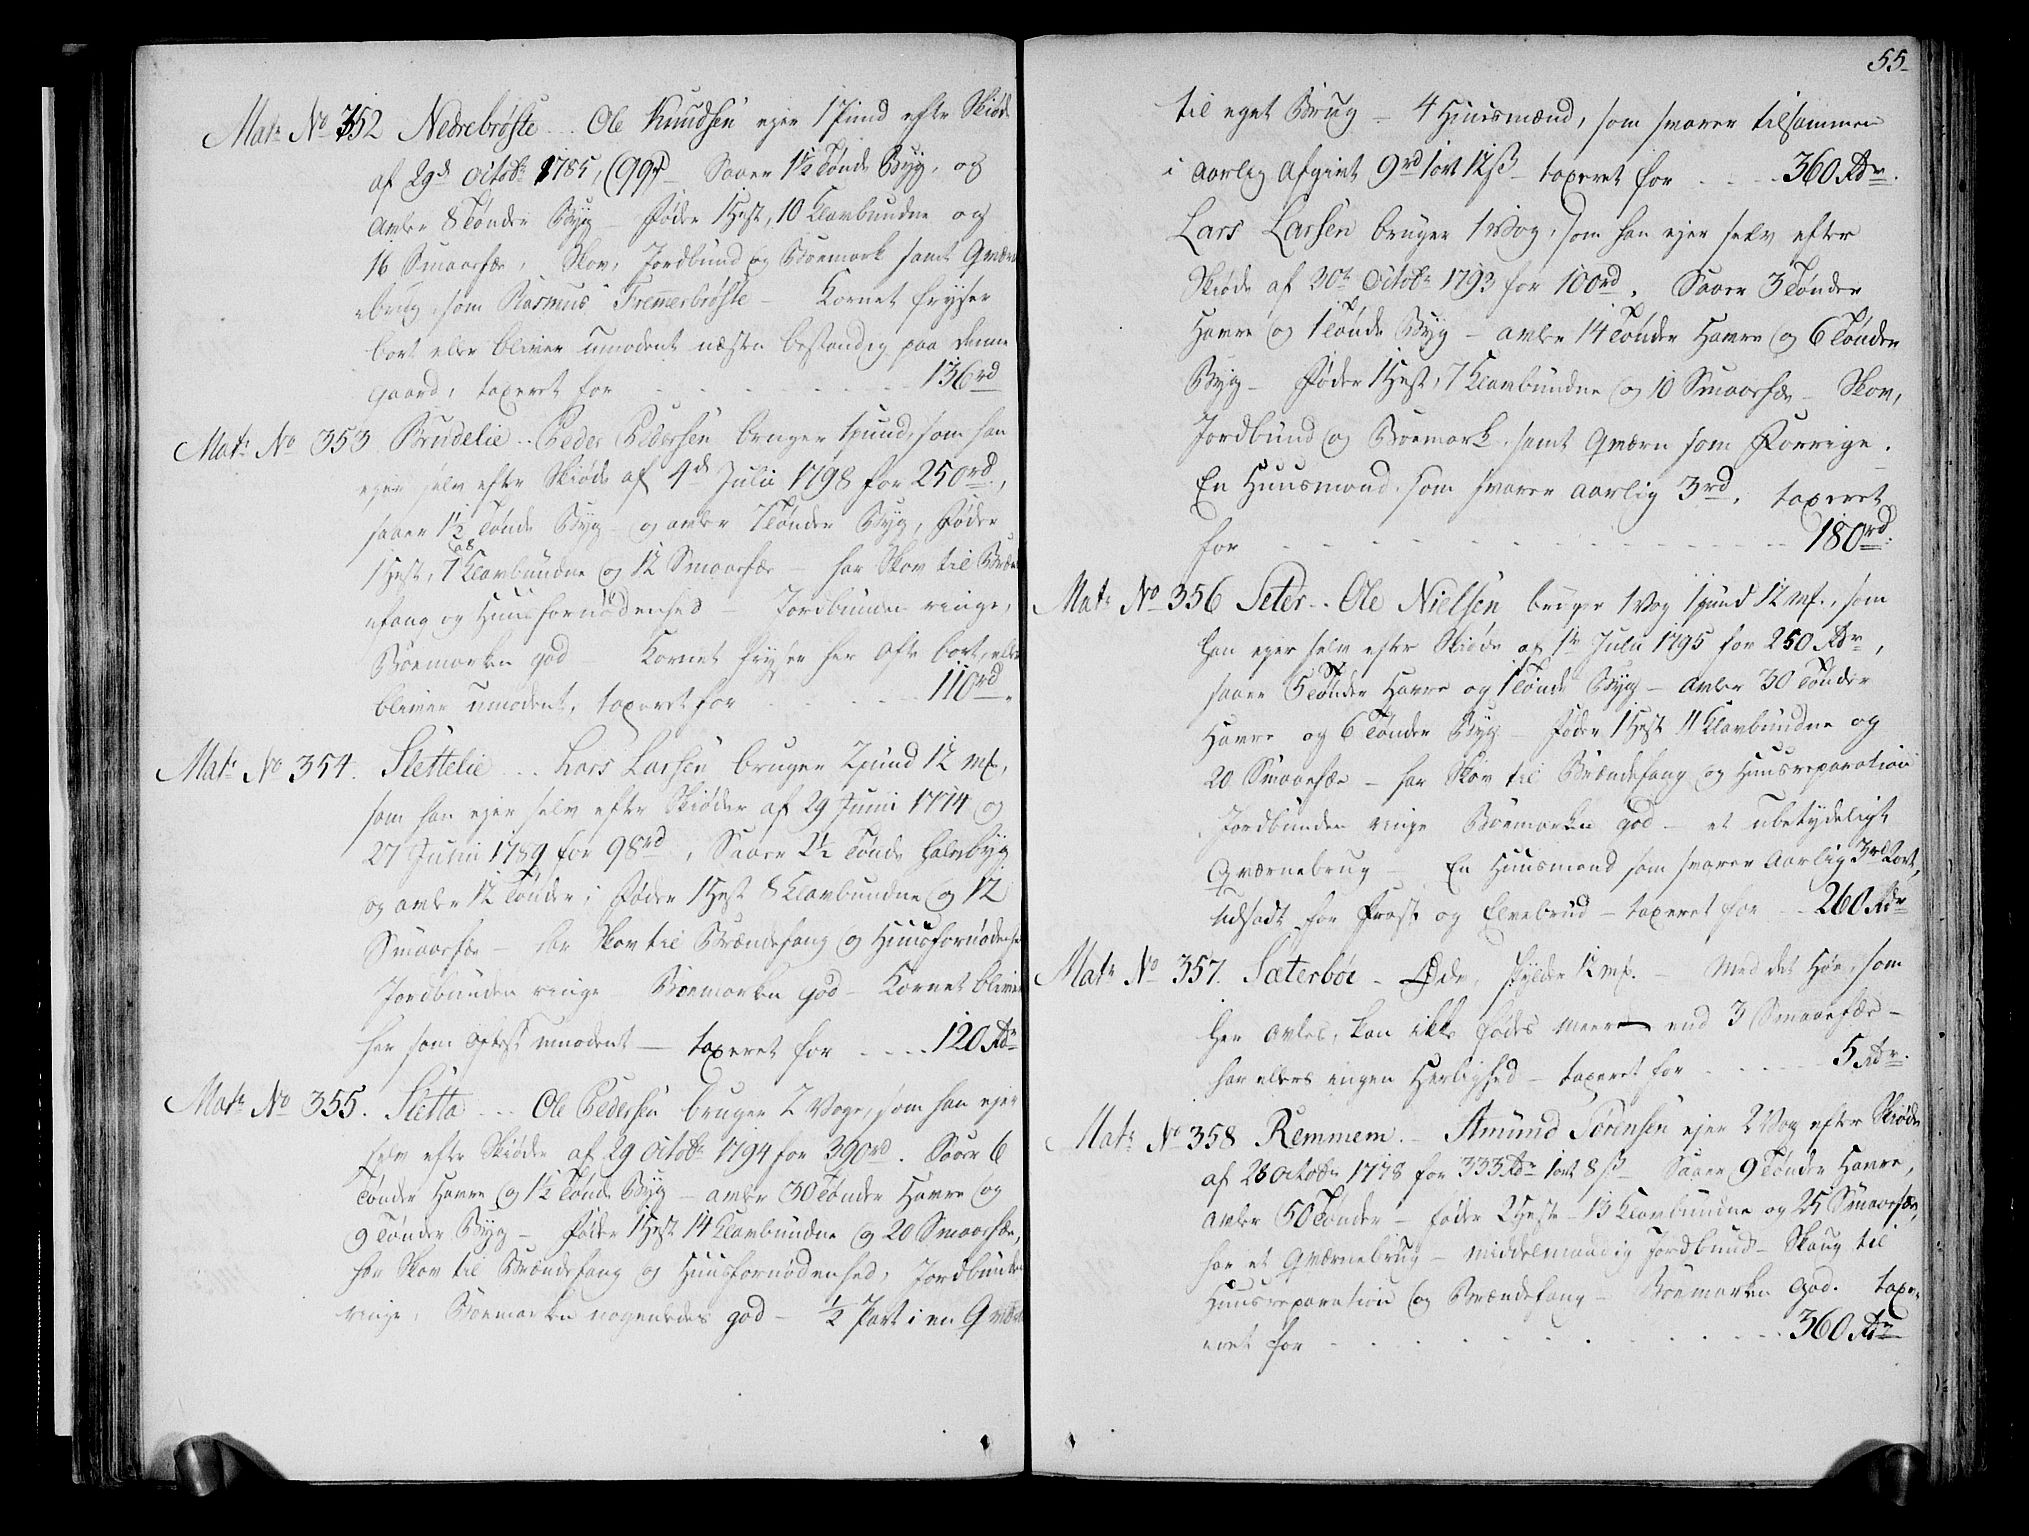 Matr No 352 Nedrebrøste . . Ole Knudsen ejer 1 Pund efter Skiøde
af 29de Octobr 1785, (99rd_ Saaer 1½ Tønde Byg, og
avler 8 Tønder Byg _ føder 1 Hest, 10 Klavbundne og
16 Smaafæ, Skov, Jordbund og Boemark samt Qværn
brug, som Rasmus Fremmerbrøste _ Kornet fryser
bort eller bliver umodent næsten bestandig paa denne
Gaard, taxeret for . . . . . . . 136rd
Matr No 353 Brudelie . . Peder Pedersen bruger 1 pund, som han
ejer selv efter Skiøde af 4de Julii 1798 for 250rd.,
saaer 1½ Tønde Byg _ og avler 7 Tønder Byg, føder
1 Hest, 7 a 8 Klavbundne og 12 Smaafæ _ har Skov til Brænde
fang og Huusfornødenhed _ Jordbunden ringe,
Boemarken god _ Kornet fryser her ofte bort, eller
bliver umodent, taxeret for . . . . 110rd.
Matr No 354. Slettelie . . . Lars Larsen bruger 2 pund 12 mk,
som han ejer selv efter Skiøder af 29 Junii 1774 og
27 Junii 1789 for 98rd, Saaer 2½ Tønde halvbyg
og avler 12 Tønder; føder 1 Hest 8 Klavbundne og 12
Smaafæ _ har Skov til Brændefang og Huusfornødenhed
Jordbunden ringe _ Boemarken god _ Kornet bliver
her som oftest umodent _ taxeret for . . . . 120 Rdr
Matr No 355. Sletta . . . Ole Pedersen bruger 2 Voger, som han ejer
selv efter Skiøde af 29 Octobr 1794 for 390rd. Saaer 6
Tønder Havre og 1½ Tønde Byg _ avler 30 Tønder Havre og
9 Tønder Byg _ føder 1 Hest 14 Klavbundne og 20 Smaafæ,
har Skov til Brændefang og Huusfornødenhed, Jordbunden
ringe, Boemarken nogenledes god _ ½ Part i en Qværn
55_
til eget Brug _ 4 Huusmænd, som svarer tilsammen
i aarlig Afgivt 9rd 1ort 12ß _ taxeret for . . . . 360 Rdr.
Lars Larsen bruger 1 Vog, som han ejer selv efter
Skiøde af 30te Octobr 1793 for 100rd. Saaer 3 Tønder
Havre og 1 Tønde Byg _ avler 14 Tønder Havre og 6 Tønder
Byg _ føder 1 Hest, 7 Klavbundne og 10 Smaafæ _ Skov,
Jordbund og Boemark, samt Qværn som Forrige.
En Huusmand, som svarer aarlig 3rd. taxeret
for . . . . . . . . . . 180rd.
Matr No 356 Seter . . Ole Nielsen bruger 1 Vog 1 pund 12 mk., som
han ejer selv efter Skiøde af 1te Julii 1795 for 250 Rdr,
saaer 5 Tønder Havre og 1 Tønde Byg _ avler 30 Tønder
Havre og 6 Tønder Byg _ føder 1 Hest 11 Klavbundne og
20 Smaafæ _ har Skov til Brændefang og Huusreparation
Jordbunden ringe Boemarken god _ et ubetydeligt
Qværnebrug _ En Huusmand som svarer aarlig 3rd 2ort,
Udsadt for Frost og Elvebrud _ taxeret for . . 260 Rdr
Matr No 357. Sæterbøe _ Øde, skylder 12 mk. _ Med det Høe, som
her avles, kan ikke fødes meere end 3 Smaafæe _
har ellers ingen Herlighed _ taxeret for . . . . . 5 Rdr.
Matr No 358 Remmem. _ Amund Sørensen ejer 2 Vog efter Skiøde
af 28 Octobr 1778 for 333 Rdr 1ort 8ß _ Saaer 9 Tønder Havre,
avler 50 Tønder _ føder 2 Heste _ 13 Klavbundne og 25 Smaafæ,
har et Qværnebrug _ middelmaadig Jordbund _ Skaug til
Huusreparation og Brændefang _ Boemarken god. taxe-
ret for . . . . . . . . . . 360 Rdr